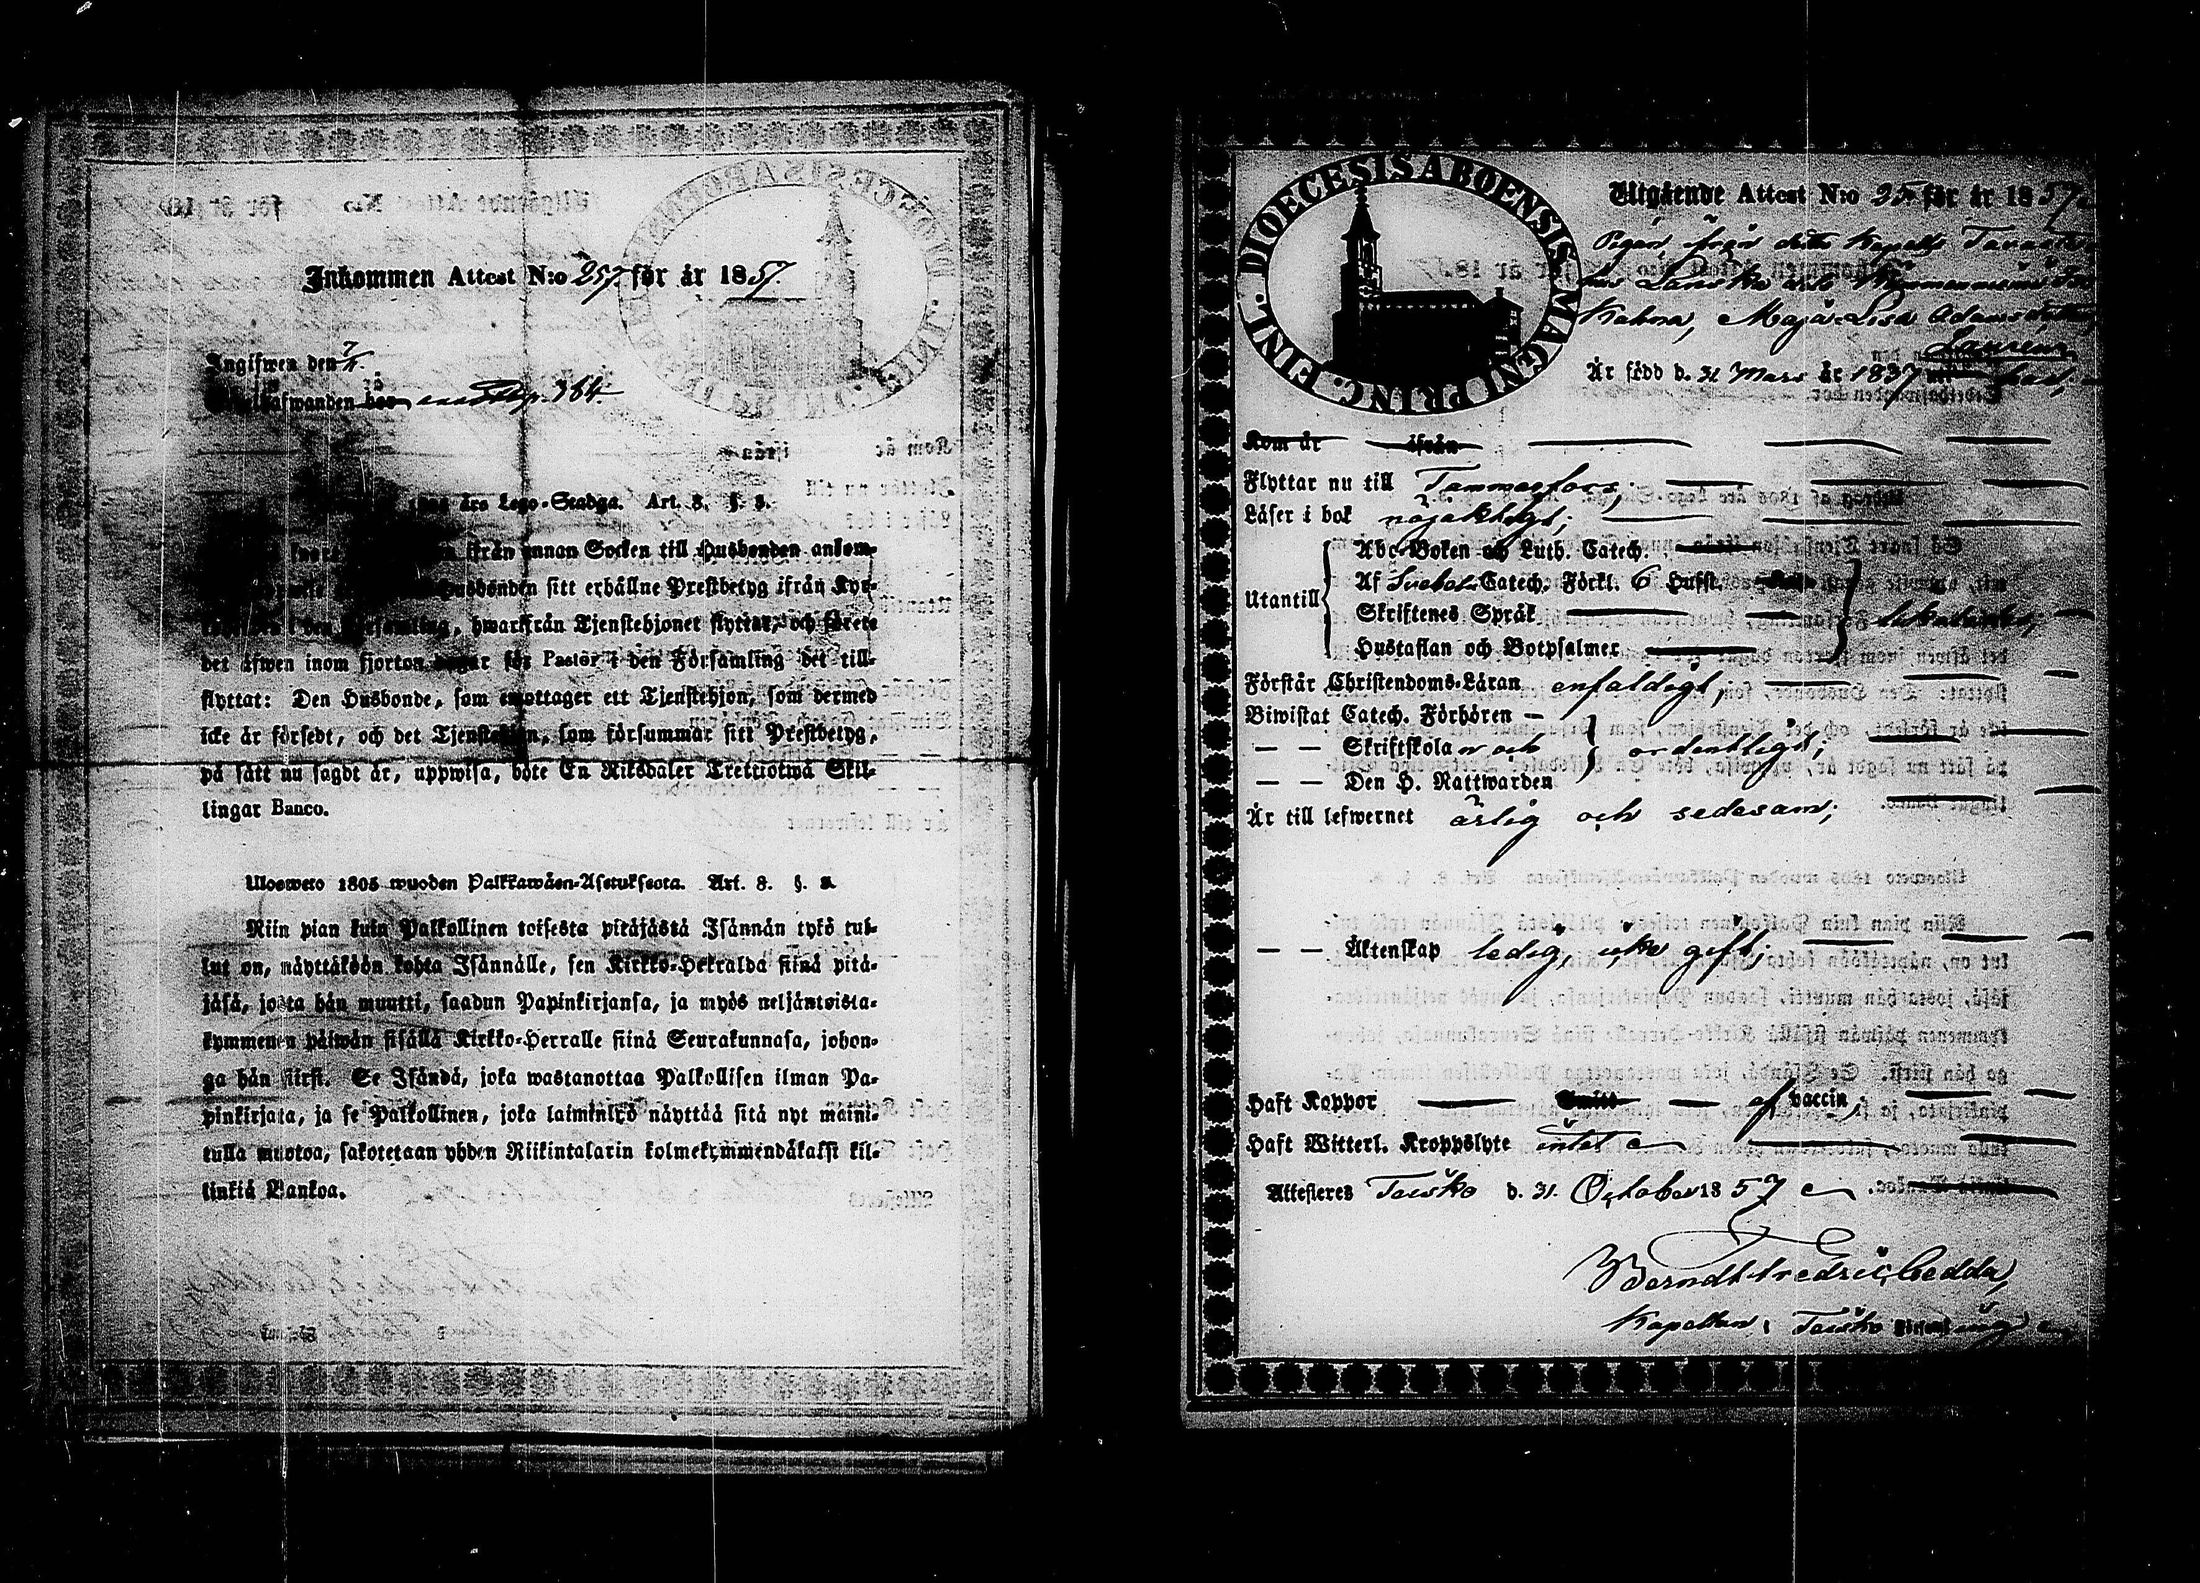 Inkommen Attest N:o 257. för år 1857.
Ingifwen den 7/11.
364.
års Lego-Stadga. Art. 8. §. 8.
ifrån annan Socken till Husbonden ankom-
Husbonden sitt erhållne Prestbetyg ifrån Kyr-
hwarifrån Tjenstehjonet flyttat, och förete
det äfwen inom fjorton dagar för Pastor i den Församling det till-
flyttat: Den Husbonde, som emottager ett Tjenstehjon, som dermed
icke är försedt, och det Tjenstehjon, som försummar sitt Prestbetyg,
på sätt nu sagdt är, uppwisa, böte En Riksdaler Trettiotwå Skil-
lingar Banco.
Ulosweto 1805 wuoden Palkkawäen-Asetuksesta. Art. 8. §.
Niin pian kuin Palkollinen toisesta pitäjästä Isännän tykö tul-
lut on, näyttäköön kohta Isännälle, sen Kirkko-Herralda siinä pitä-
jäsä, josta hän muutti, saadun Papinkirjansa, ja myös neljäntoista-
kymmenen päiwän sisällä Kirkko-Herralle siinä Seurakunnasa, johon-
ga hän siirsi. Se Isändä, joka wastanottaa Palkollisen ilman Pa-
pinkirjata, ja se Palkollinen, joka laiminlyö näyttää sitä nyt maini-
tulla muotoa, sakotetaan yhden Riikintalarin kolmekymmendäkaksi kil-
linkiä Bankoa.
DIOECESIS ABOENSIS MAGNI PRINC. FINL.
Utgående Attest N:o 25 för år 1857
Pigan ifrån detta Kapells
Maja Lisa Adamsdotter
Är född d. 31 Mars år 1837
Kom år ifrån
Flyttar nu till Tammerfors;
Läser i bok nöjaktigt;
Utantill
Abc-Boken och Luth. Catech.
Af Svebel. Catech. Förkl. 6 Hufst.
Skriftenes Språk
Hustaflan och Botpsalmer
Förstår Christendoms-Läran enfaldigt,
Biwistat Catech. Förhören —
— — Skriftskolan och ordentligt;
— — Den H. Nattwarden
Är till lefwernet ärlig och sedesam;
— — Äktenskap ledig, icke gift;
Haft Koppor af vaccin;
Haft Witterl. Kroppslyte intet
Attesteras Teisko d. 31. October 1857
Berndt Fredric Cedda,
Kapellan i Teisko